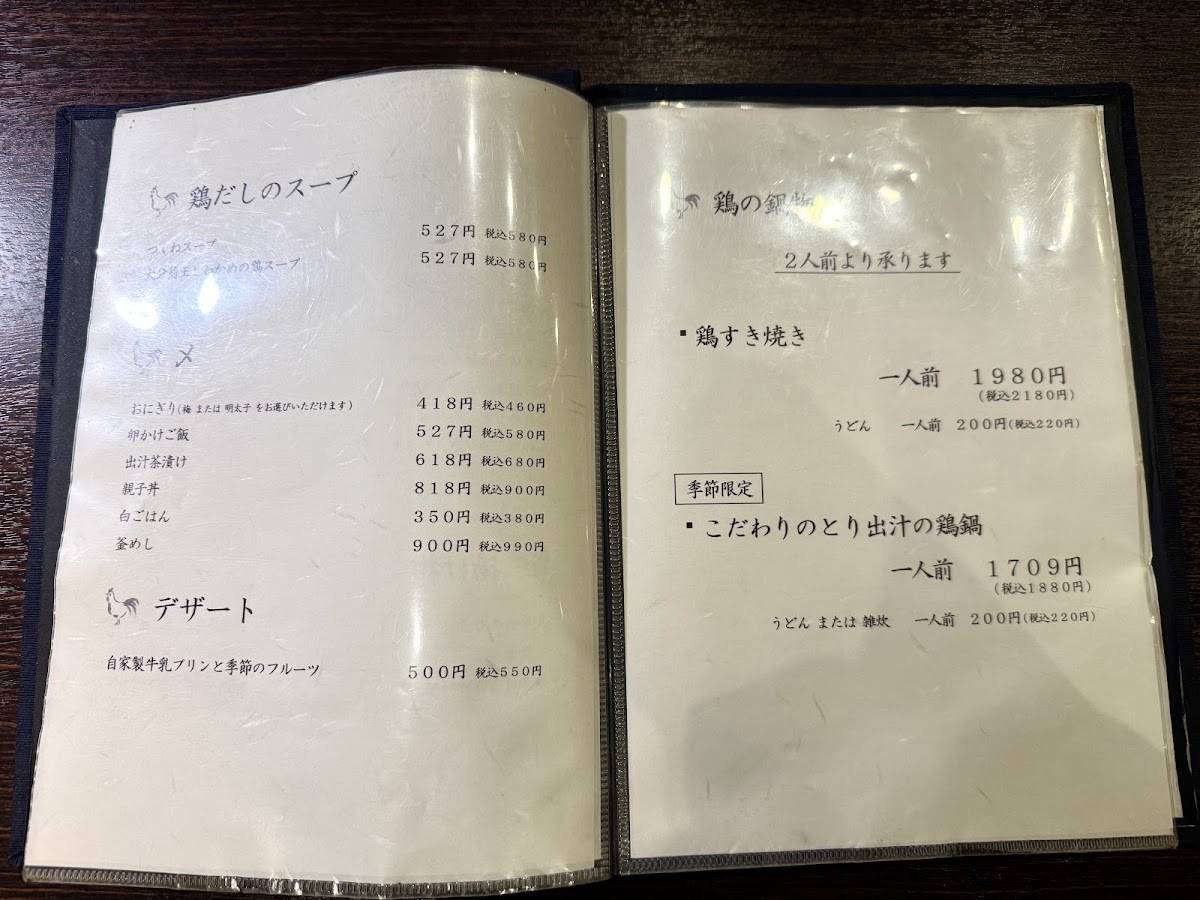 鶏だしのスープ
つくねスープ 527円 税込580円
わかめの鶏スープ 527円 税込580円
〆
おにぎり(梅 または 明太子 をお選びいただけます) 418円 税込460円
卵かけご飯 527円 税込580円
出汁茶漬け 618円 税込680円
親子丼 818円 税込900円
白ごはん 350円 税込380円
釜めし 900円 税込990円
デザート
自家製牛乳プリンと季節のフルーツ 500円 税込550円
鶏の鍋物
2人前より承ります
▪鶏すき焼き
一人前 1980円
(税込2180円)
うどん 一人前 200円(税込220円)
季節限定
▪こだわりのとり出汁の鶏鍋
一人前 1709円
(税込1880円)
うどん または 雑炊 一人前 200円(税込220円)